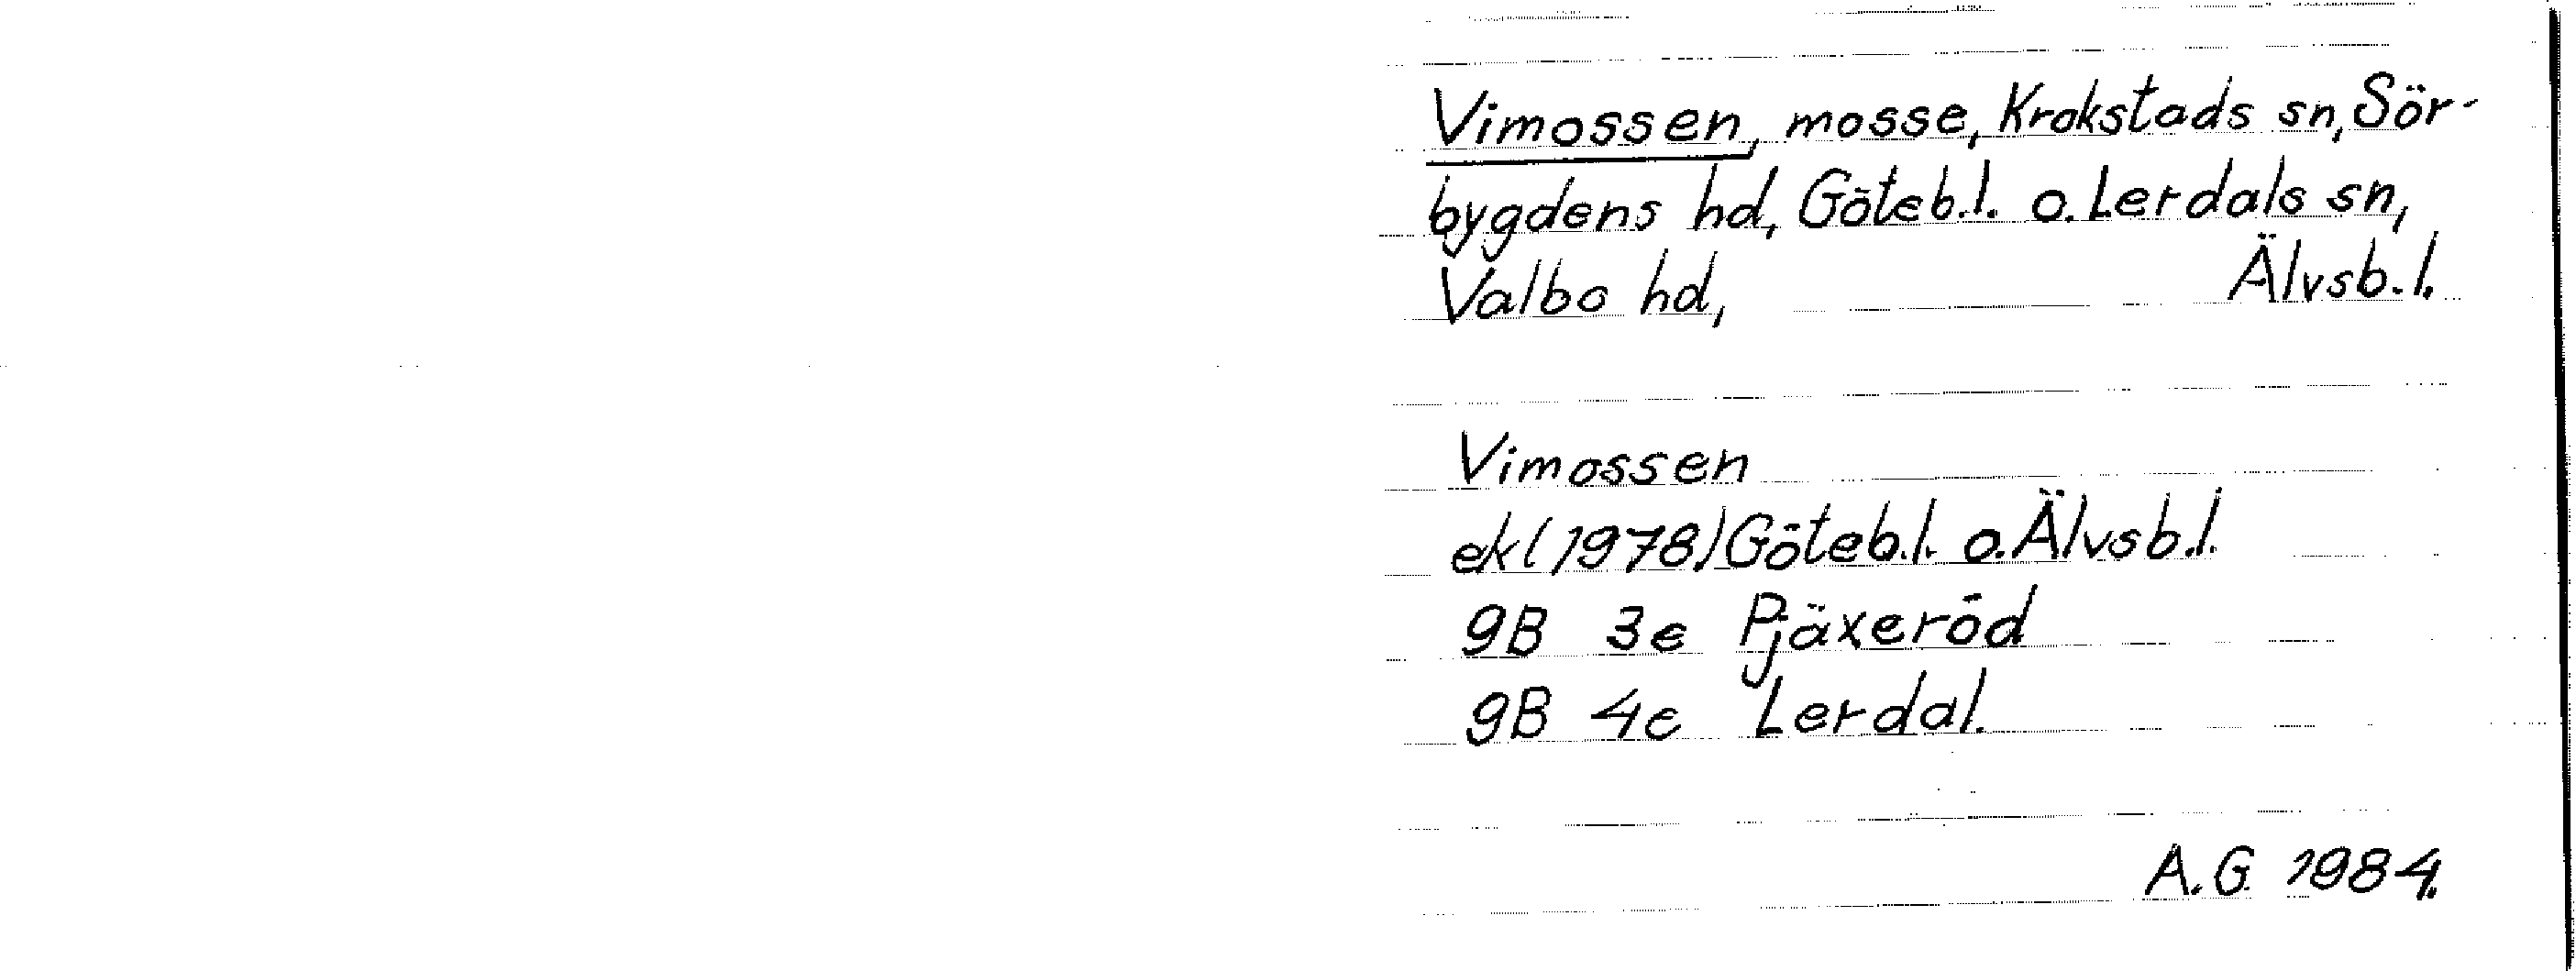 Vimossen, mosse, Krokstads sn, Sör-
bygdens hd, Göteb.l. o. Lerdals sn,
Valbo hd, Älvsb.l.
Vimossen
ekl (1978) Göteb.l. o. Älvsb.l.
9B 3e Pjäxeröd
9B 4e Lerdal.
A.G. 1984.